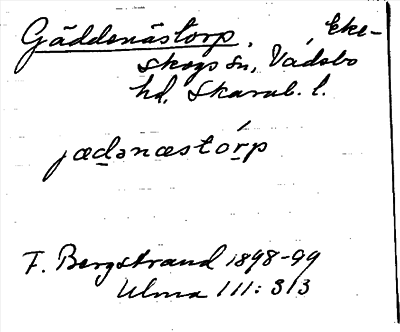 Gäddenästorp, Eke-
skogs sn, Vadsbo
hd, Skarab. l.
jædənæstórp
F. Bergstrand 1898-99
Ulma 111:313